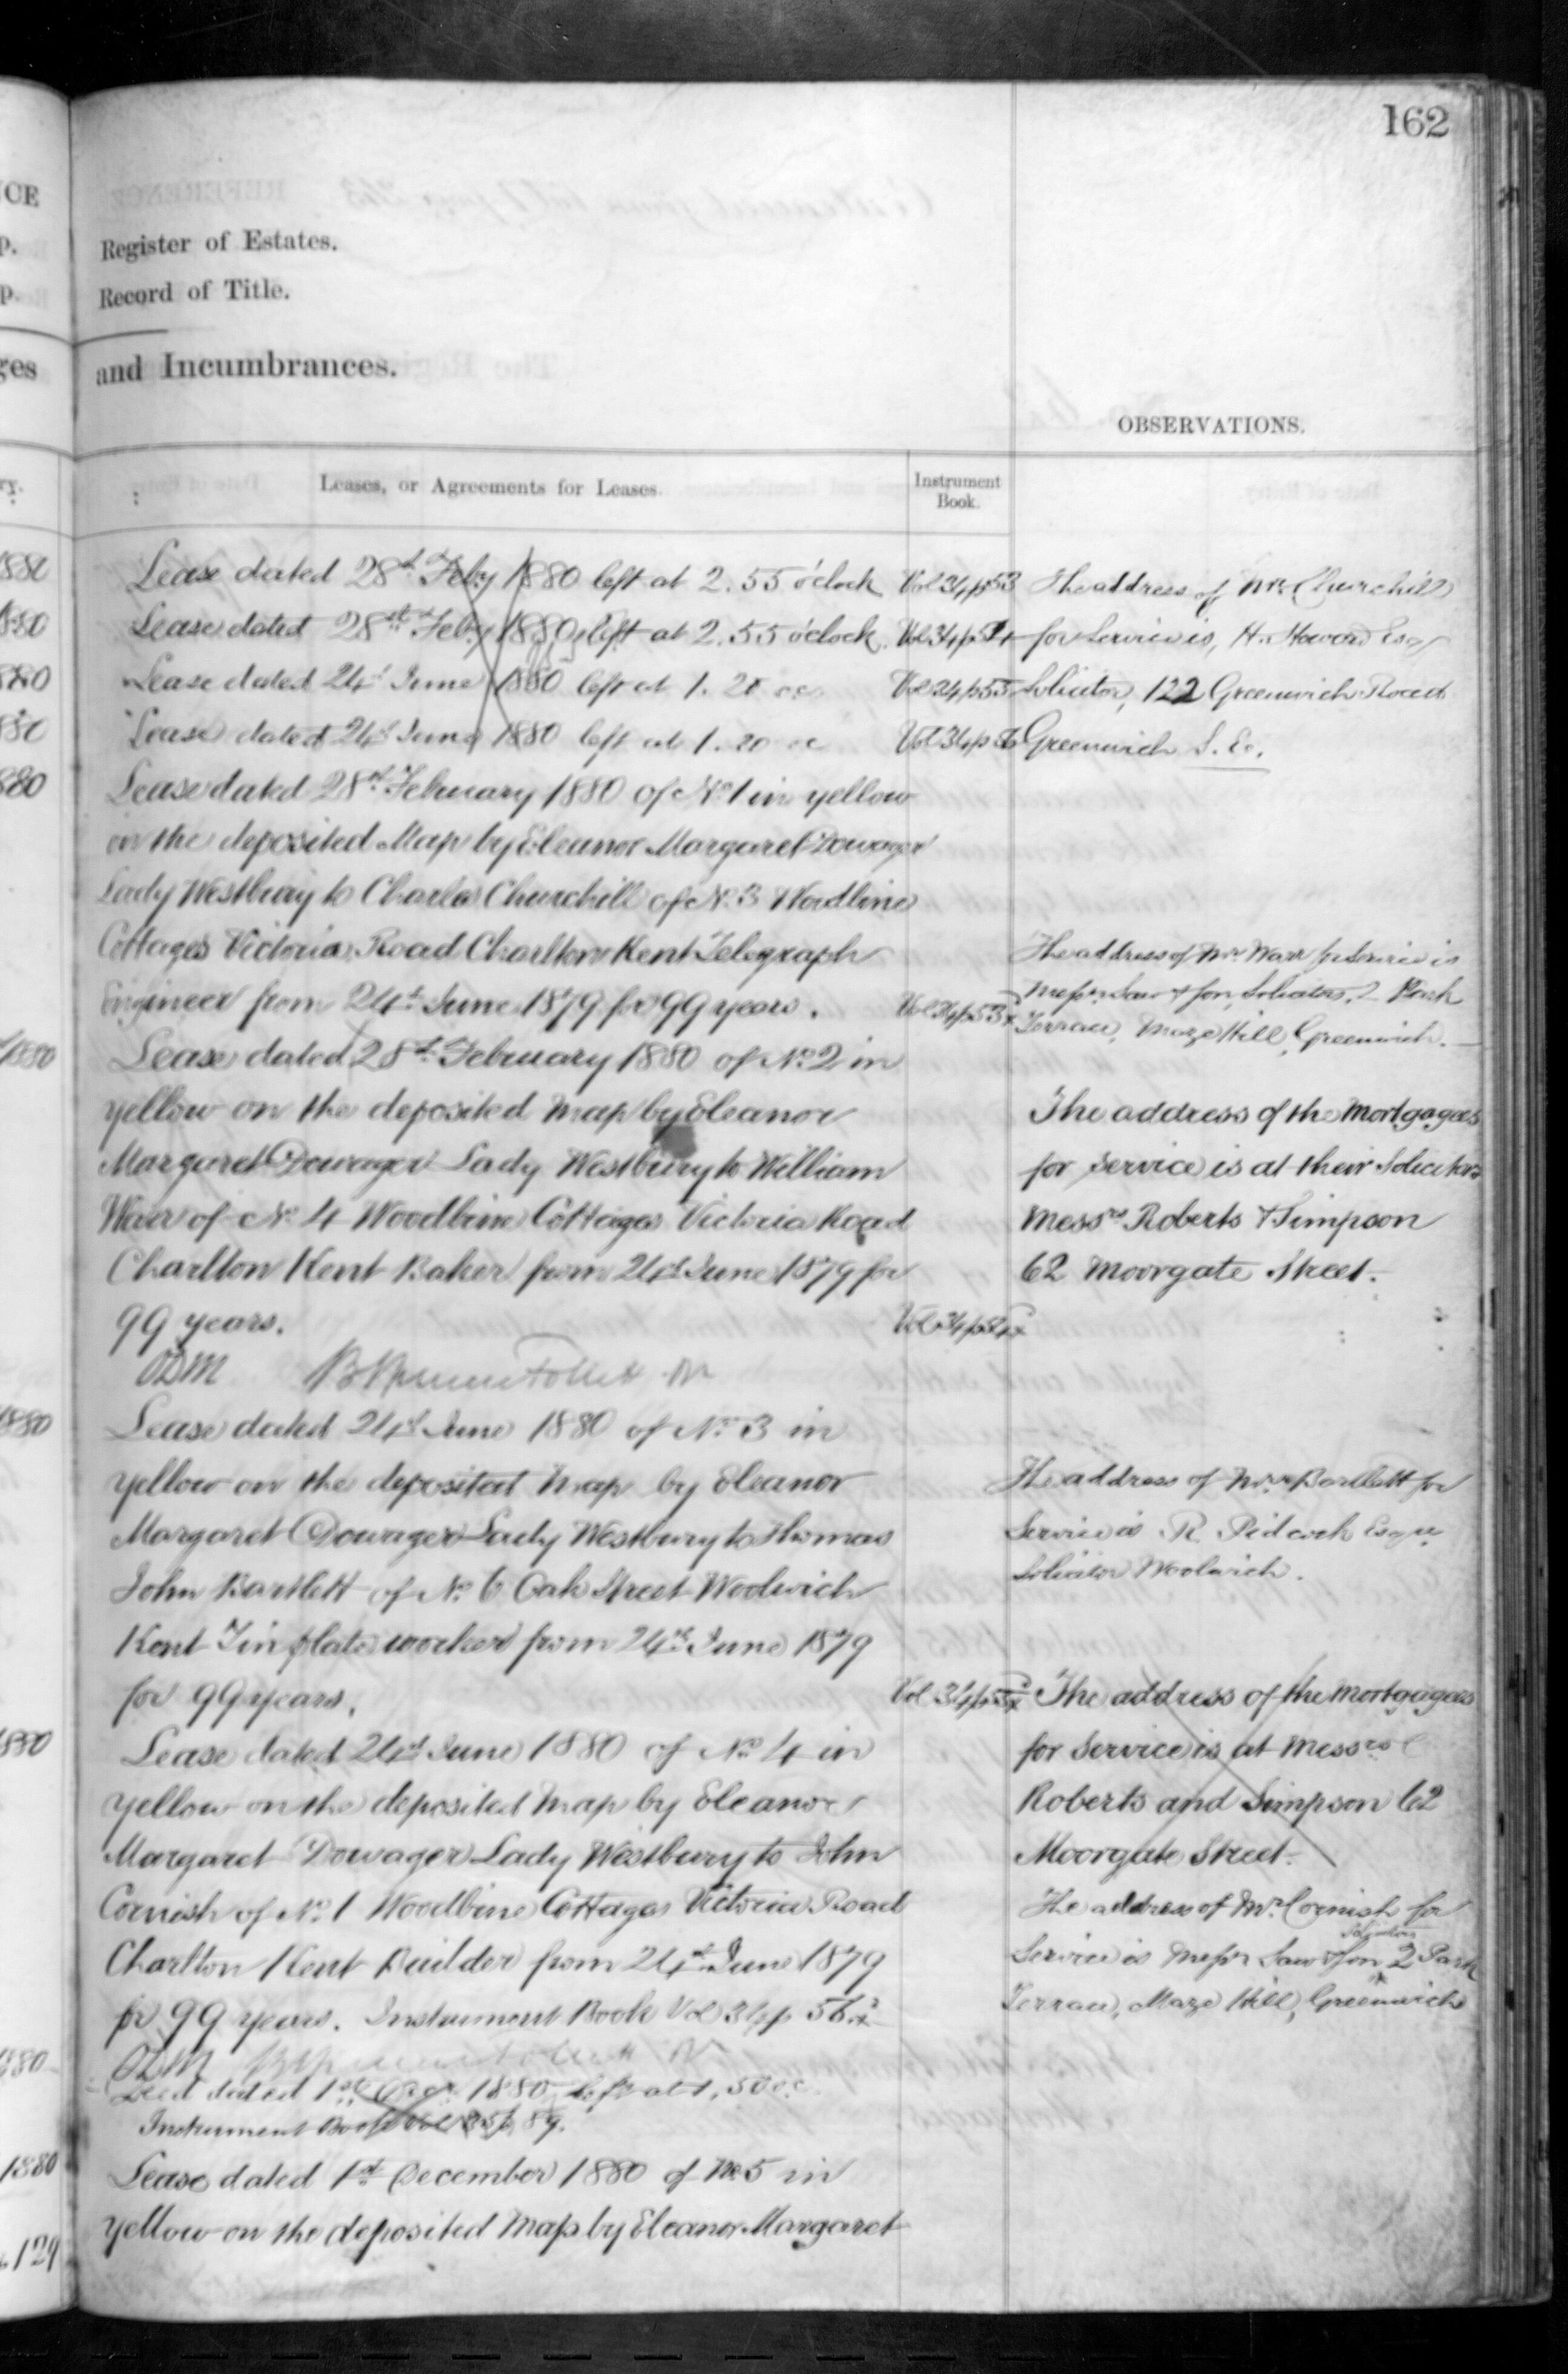 162
CE
p.
p.
ges
ry.
Register of Estates.
Record of Title.
and Incumbrances.
OBSERVATIONS.
Leases, or Agreements for Leases.
Instrument
Book.
Lease dated 28th Feby 1880 left at 2.55 o'clock Vol 34 p 53
Lease dated 28th Feby 1880 left at 2.55 o'clock Vol 34 p 54
Lease dated 24th June 1880 left at 1.20 oc Vol 34 p 55
Lease dated 24th June 1880 left at 1.20 oc Vol 34 p 56
Lease dated 28th February 1880 of No 1 in yellow
on the deposited Map by Eleanor Margaret Dowager
Lady Westbury to Charles Churchill of No 3 Woodbine
Cottages Victoria Road Charlton Kent Telegraph
Engineer from 24th June 1879 for 99 years. Vol 34 p 53
Lease dated 28th February 1880 of No 2 in
yellow on the deposited Map by Eleanor
Margaret Dowager Lady Westbury to William
of No 4 Woodbine Cottages Victoria Road
Charlton Kent Baker from 24th June 1879 for
99 years. Vol 34 p 54
ODM
Lease dated 24th June 1880 of No 3 in
yellow on the deposited Map by Eleanor
Margaret Dowager Lady Westbury to Thomas
John Bartlett of No 6 Oak Street Woolwich
Kent Tin plate worker from 24th June 1879
for 99 years. Vol 34 p 55
Lease dated 24th June 1880 of No 4 in
yellow on the deposited Map by Eleanor
Margaret Dowager Lady Westbury to John
Cornish of No 1 Woodbine Cottages Victoria Road
Charlton Kent Builder from 24th June 1879
for 99 years. Instrument Book Vol 34 p 56
ODM
dated 1st Decr 1880 left at 1.50 oc
Instrument Book Vol 35 p 89.
Lease dated 1st December 1880 of No 5 in
yellow on the deposited Map by Eleanor Margaret
The address of Mr Churchill
for Service is, H. Howard Esq
Solicitor, 122 Greenwich Road
Greenwich S.E.
The address of Mr for Service is
Messrs Saw & Son, Solicitors, 2 Park
Terrace, Maze Hill, Greenwich.
The address of the Mortgagees
for service is at their Solicitors
Messrs Roberts & Simpson
62 Moorgate Street.
The address of Mr Bartlett for
Service is R. Pidcock Esqre
Solicitor Woolwich.
The address of the Mortgagees
for service is at Messrs
Roberts and Simpson 62
Moorgate Street.
The address of Mr Cornish for
Service is Messrs Saw & Son Solicitors 2 Park
Terrace, Maze Hill, Greenwich
1880
1880
1880
1880
1880
1880
1880
1880
1880
129